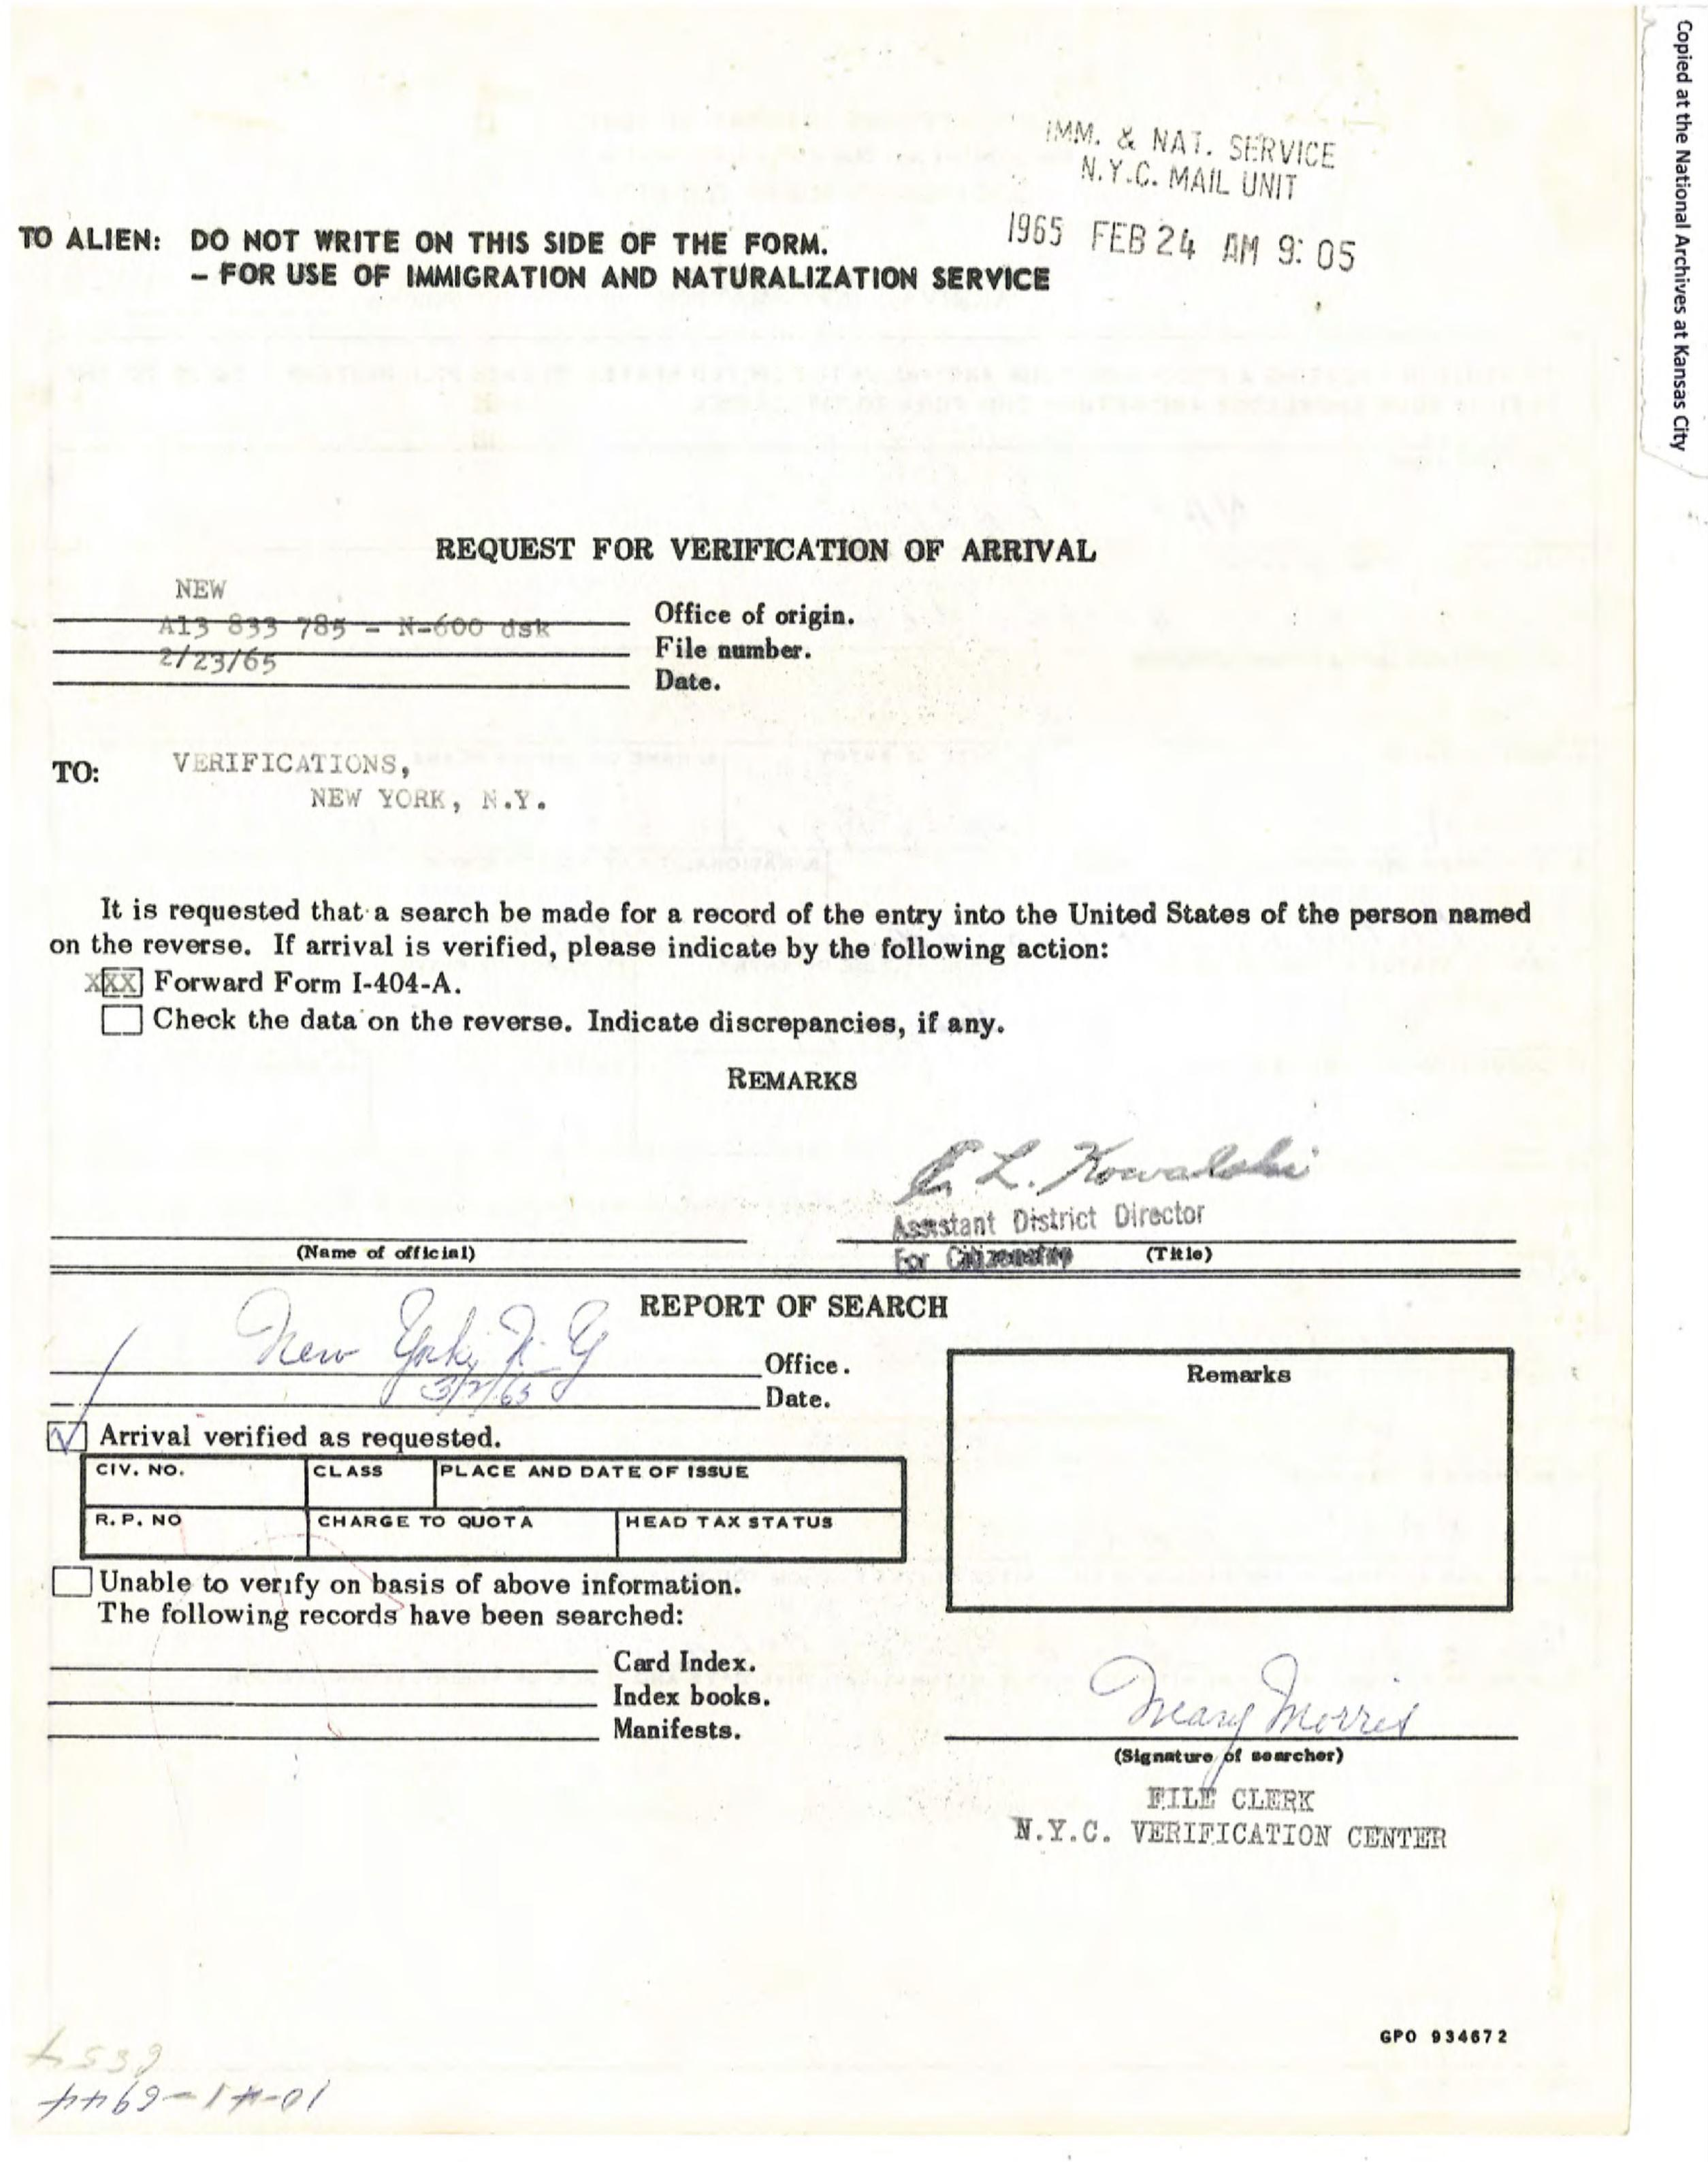 Copied at the National Archives at Kansas City
IMM. & NAT. SERVICE
N.Y.C. MAIL UNIT
1965 FEB 24 AM 9:05
TO ALIEN: DO NOT WRITE ON THIS SIDE OF THE FORM.
– FOR USE OF IMMIGRATION AND NATURALIZATION SERVICE
REQUEST FOR VERIFICATION OF ARRIVAL
NEW
Office of origin.
A13 833 785 – N-600 dsk
File number.
2/23/65
Date.
TO: VERIFICATIONS,
NEW YORK, N.Y.
It is requested that a search be made for a record of the entry into the United States of the person named
on the reverse. If arrival is verified, please indicate by the following action:
XXX Forward Form I-404-A.
Check the data on the reverse. Indicate discrepancies, if any.
REMARKS
L. Kowalski
Assistant District Director
(Name of official)
For Citizenship (Title)
REPORT OF SEARCH
New York, N.Y
Office.
Date.
Remarks
Arrival verified as requested.
CIV. NO. CLASS PLACE AND DATE OF ISSUE
R. P. NO CHARGE TO QUOTA HEAD TAX STATUS
Unable to verify on basis of above information.
The following records have been searched:
Card Index.
Index books.
Manifests.
Mary Morris
(Signature of searcher)
FILE CLERK
N.Y.C. VERIFICATION CENTER
GPO 934672